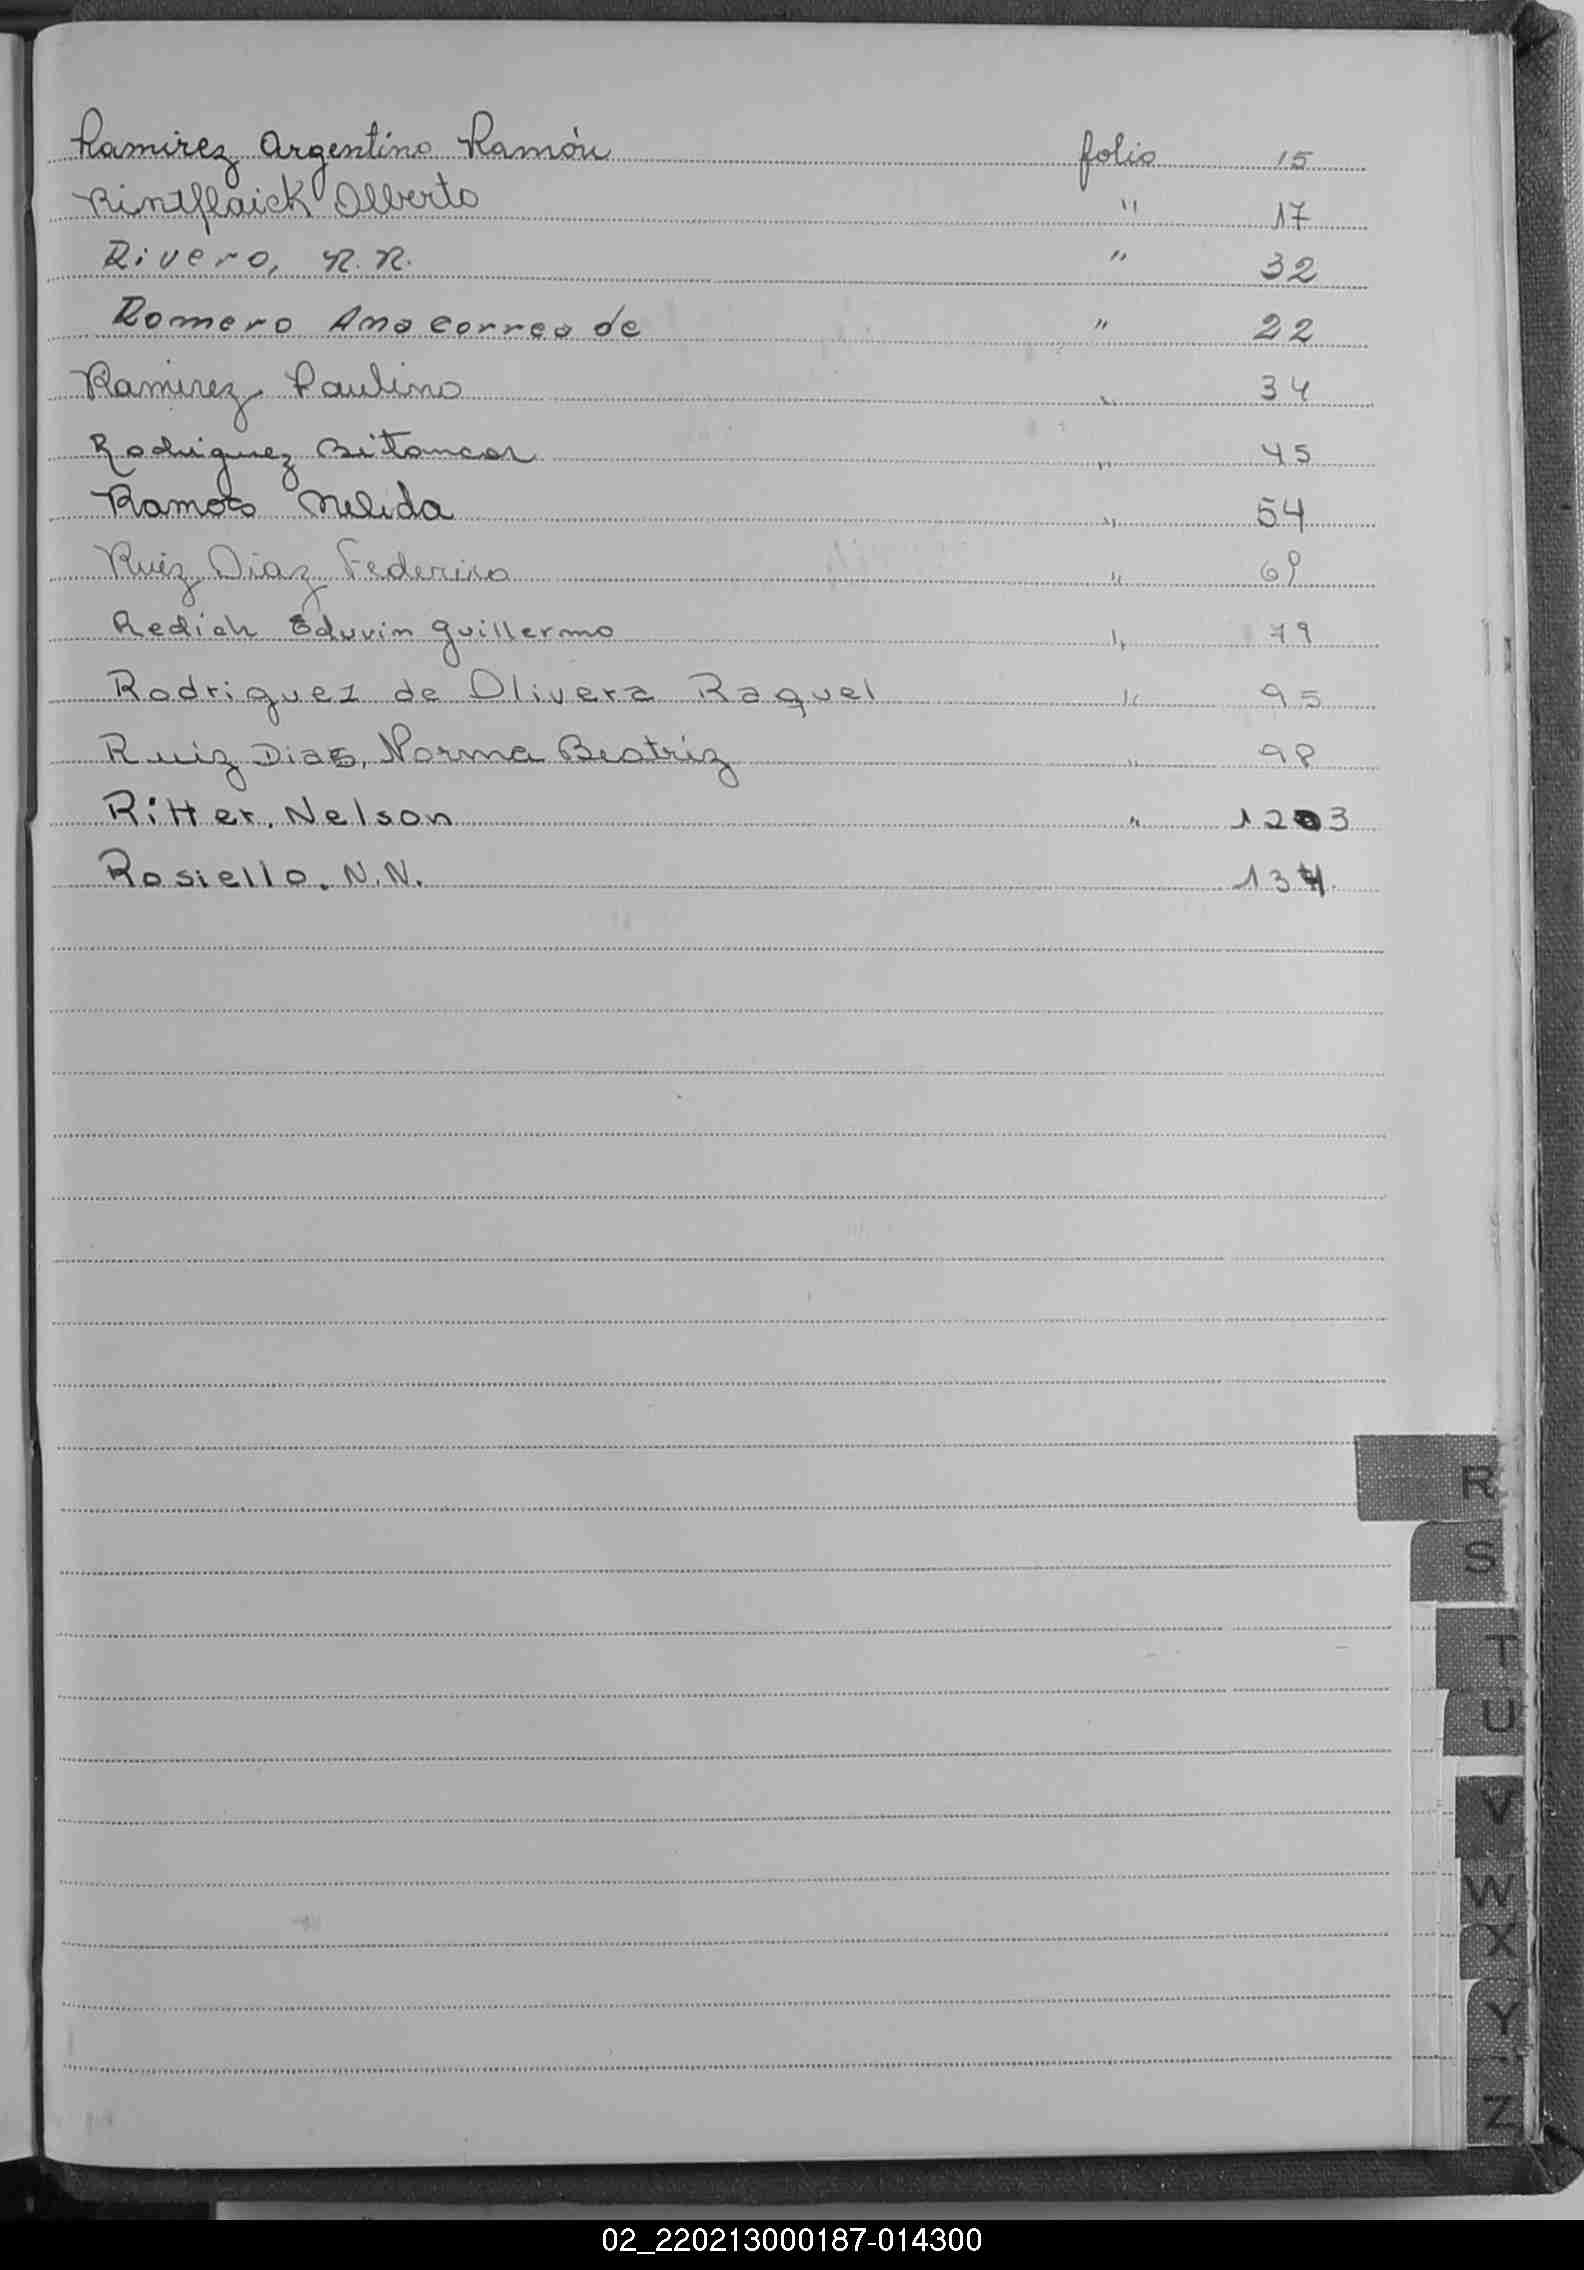 Ramirez Argentino Ramón folio 15
Rintflaick Alberto " 17
Rivero, N.N. " 32
Romero Ana Correa de " 22
Ramirez Paulino " 34
Rodriguez Bitancor " 45
Ramos Nelida " 54
Ruiz Diaz Federico " 69
Redich Eduvin Guillermo " 79
Rodriguez de Olivera Raquel " 95
Ruiz Dias, Norma Beatriz " 98
Ritter, Nelson " 123
Rosiello, N.N. 134
R
S
T
U
V
W
X
Y
Z
02_220213000187-014300